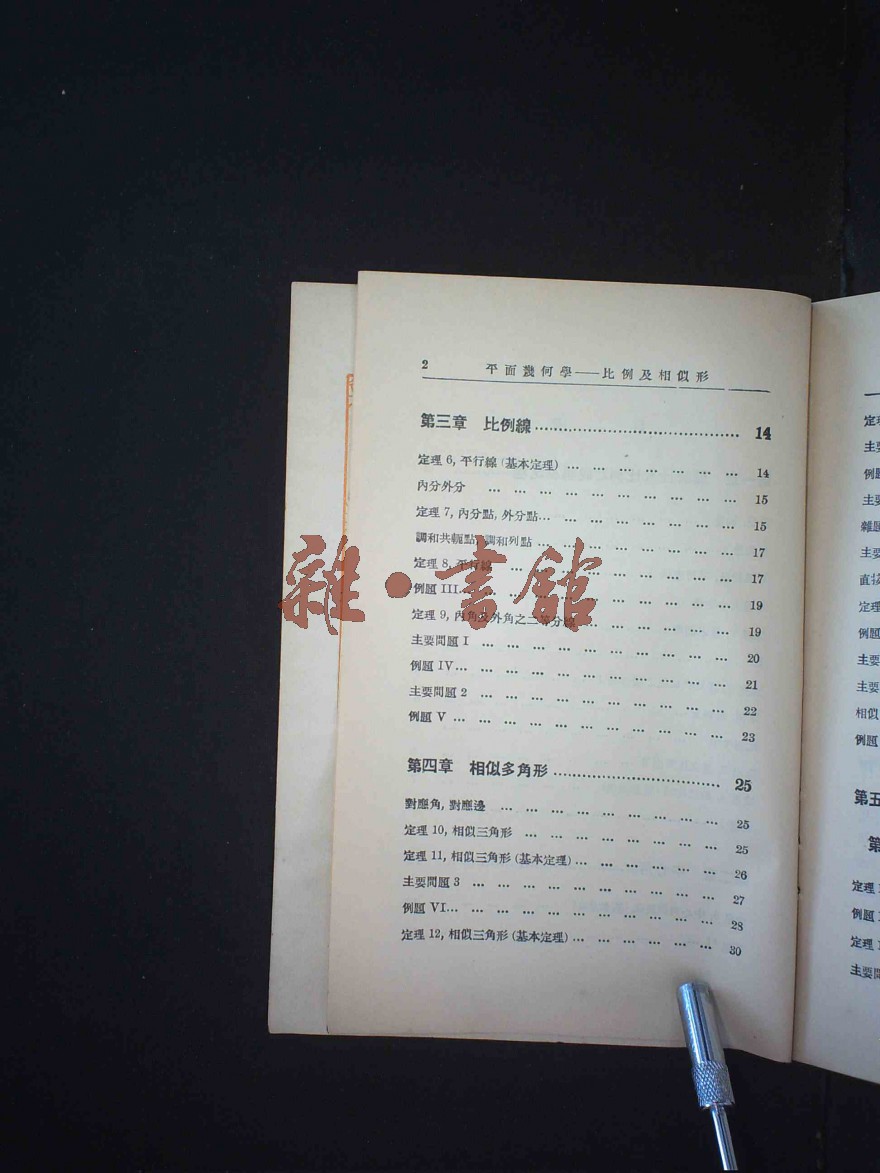 2 平面幾何學——比例及相似形
第三章 比例線 14
定理 6, 平行線 (基本定理) 14
內分外分 15
定理 7, 內分點, 外分點 15
調和共軛點, 調和列點 17
定理 8, 平行線 17
例題 III 19
定理 9, 內角及外角之二等分線 19
主要問題 I 20
例題 IV 21
主要問題 2 22
例題 V 23
第四章 相似多角形 25
對應角, 對應邊 25
定理 10, 相似三角形 25
定理 11, 相似三角形 (基本定理) 26
主要問題 3 27
例題 VI 28
定理 12, 相似三角形 (基本定理) 30
雜·書館
定理
主要
例題
主要
雜題
主要
直接
定理
例題
主要
主要
相似
例題
第五
第
定理 1
例題
定理 1
主要問